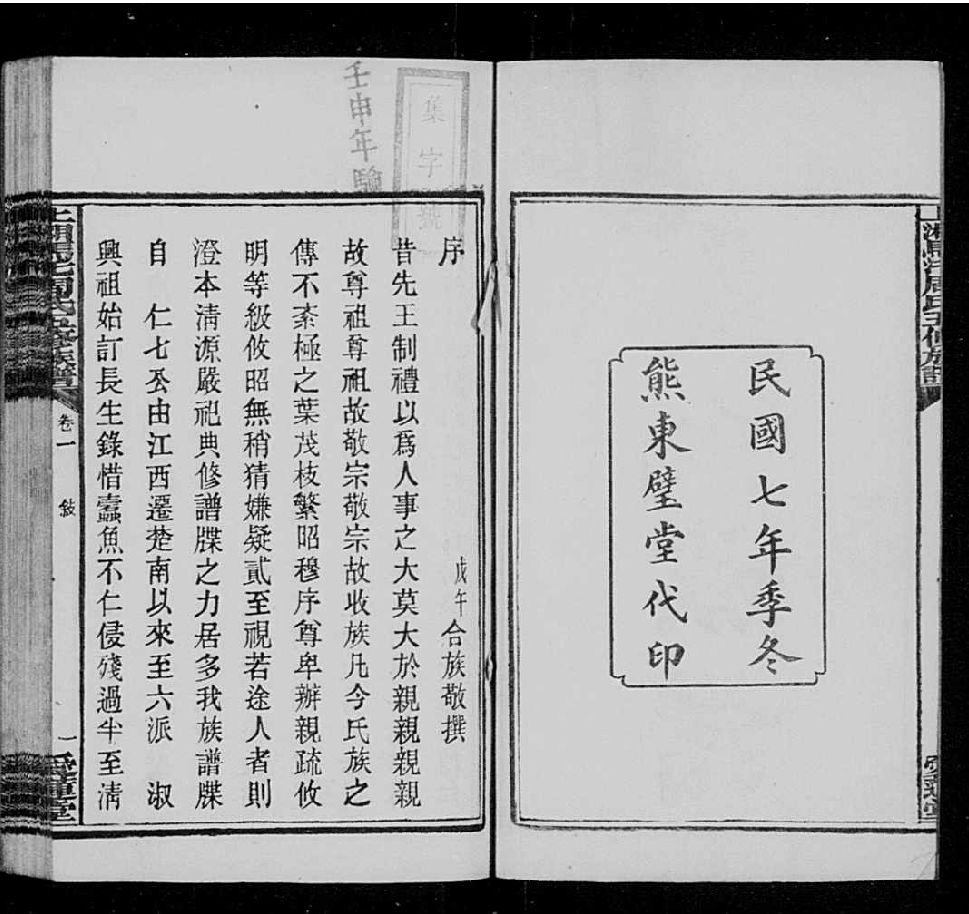 民國七年季冬
熊東璧堂代印
序
戊午合族敬撰
昔先王制禮以爲人事之大莫大於親親親親
故尊祖尊祖故敬宗敬宗故收族凡今氏族之
傳不紊極之葉茂枝繁昭穆序尊卑辦親疏攸
明等級攸昭無稍猜嫌疑貳至視若途人者則
澄本清源嚴祀典修譜牒之力居多我族譜牒
自 仁七公由江西遷楚南以來至六派 淑
興祖始訂長生錄惜蠹魚不仁侵殘過半至清
壬申年
集字號
周氏五修族譜
卷一
敘
一